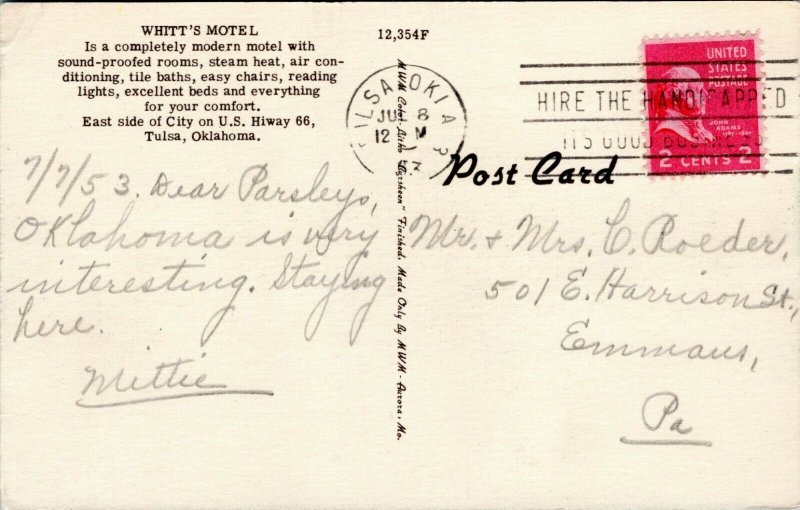 WHITT'S MOTEL
Is a completely modern motel with
sound-proofed rooms, steam heat, air con-
ditioning, tile baths, easy chairs, reading
lights, excellent beds and everything
for your comfort.
East side of City on U.S. Hiway 66,
Tulsa, Oklahoma.
12,354F
7/7/53. Dear Parsleys,
Oklahoma is very
interesting. Staying
here.
Mittie
MWM Color-Litho "Cyrsheen" Finished. Made Only By MWM - Aurora, Mo.
ULSA OKLA
8
12 M
HIRE THE HANDICAPPED
IT'S GOOD BUSINESS
UNITED
STATES
POSTAGE
JOHN
ADAMS
1797-1801
2 CENTS 2
Post Card
Mr. & Mrs. C. Roeder,
501 E. Harrison St.,
Emmaus,
Pa